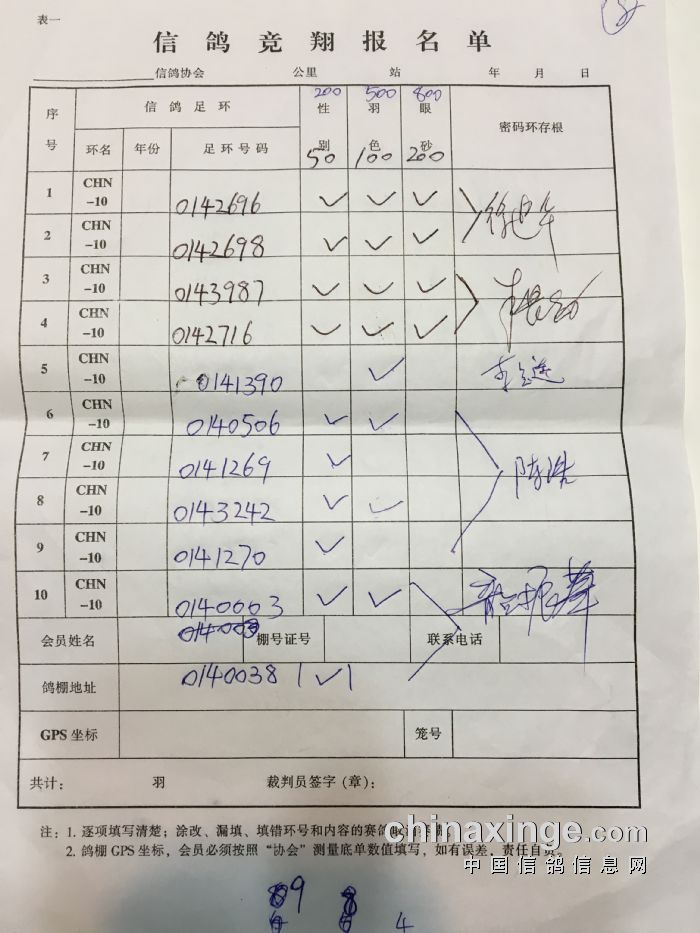 表一
信鸽竞翔报名单
信鸽协会 公里 站 年 月 日
序号 信鸽足环 性别 羽色 眼砂 密码环存根
200 500 800
50 100 200
环名 年份 足环号码
1 CHN-10 0142696 ✓ ✓ ✓
2 CHN-10 0142698 ✓ ✓ ✓
3 CHN-10 0143987 ✓ ✓ ✓
4 CHN-10 0142716 ✓ ✓ ✓
5 CHN-10 0141390 ✓
6 CHN-10 0140506 ✓ ✓
7 CHN-10 0141269 ✓
陈浩
8 CHN-10 0143242 ✓ ✓
9 CHN-10 0141270 ✓
10 CHN-10 0140003 ✓ ✓
会员姓名 棚号证号 联系电话
鸽棚地址 0140038 ✓
GPS 坐标 笼号
共计： 羽 裁判员签字（章）：
注：1. 逐项填写清楚；涂改、漏填、填错环号和内容的赛鸽取消
2. 鸽棚 GPS 坐标，会员必须按照“协会”测量底单数值填写，如有误差，责任自负。
chinaxinge.com
中国信鸽信息网
89 8
8 4